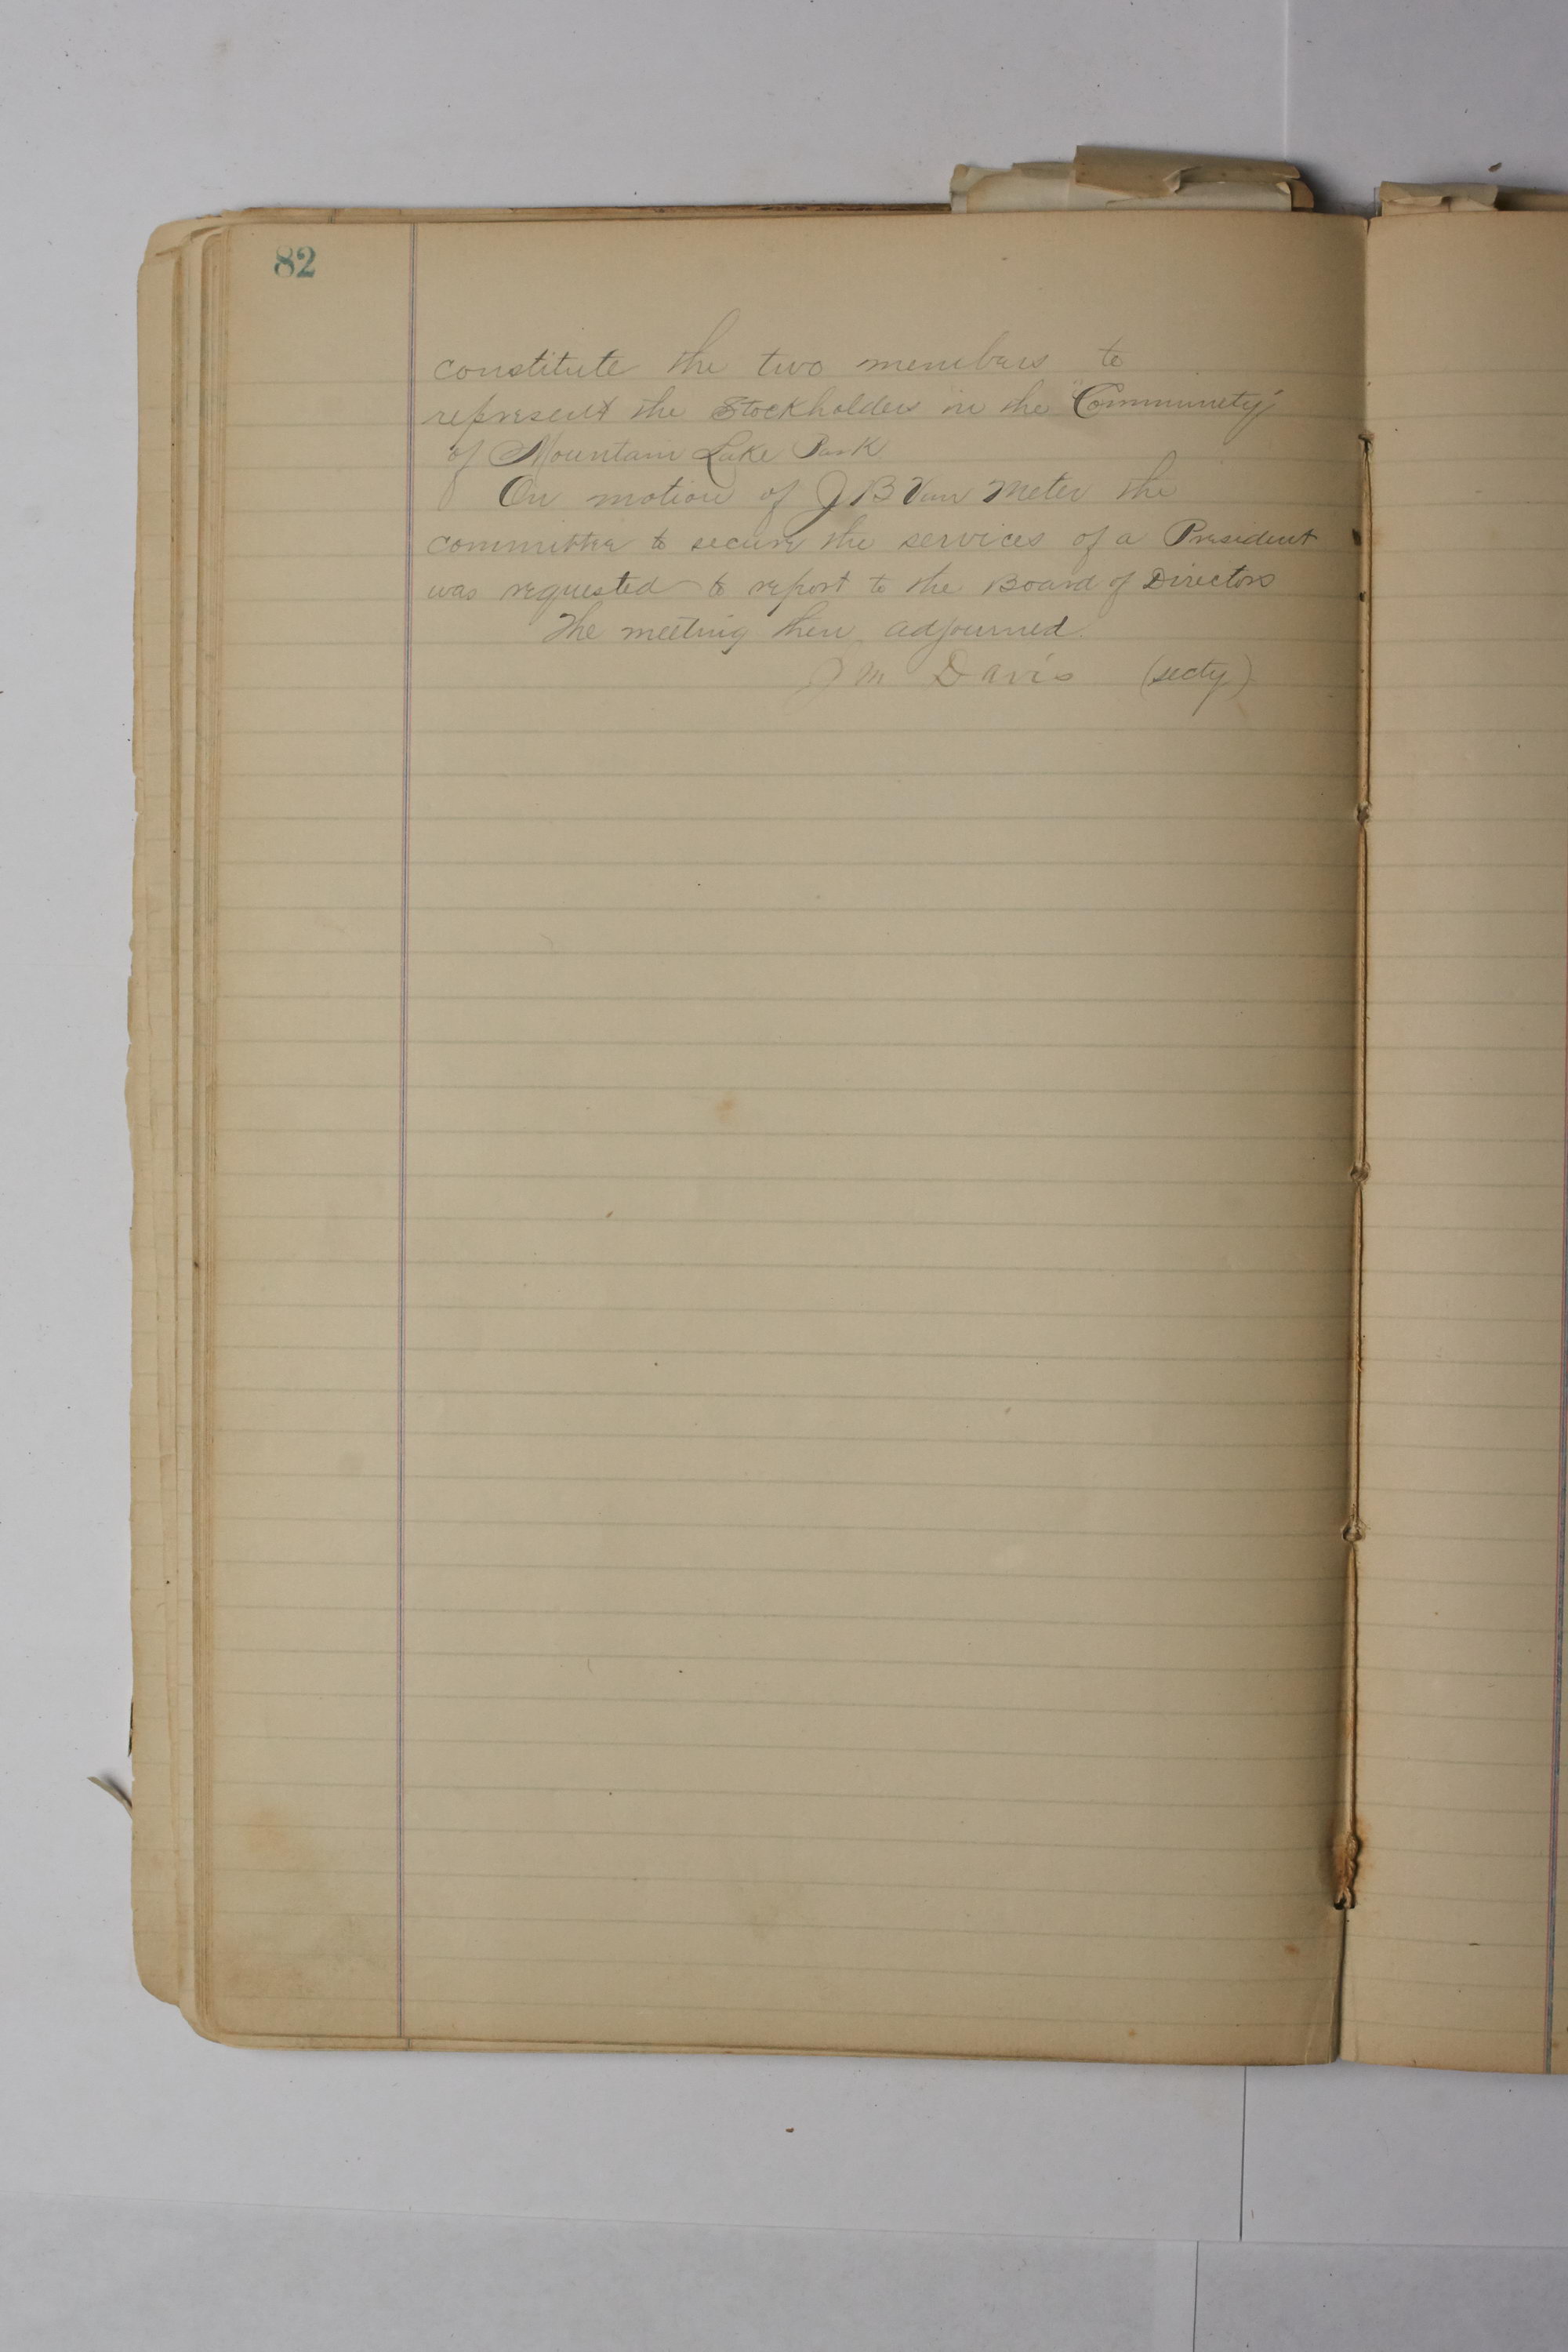 82
constitute the two members to
represent the Stockholders in the "Community"
of Mountain Lake Park
On motion of J B Van Meter the
committee to secure the services of a President
was requested to report to the Board of Directors
The meeting then adjourned.
J M Davis (secty)